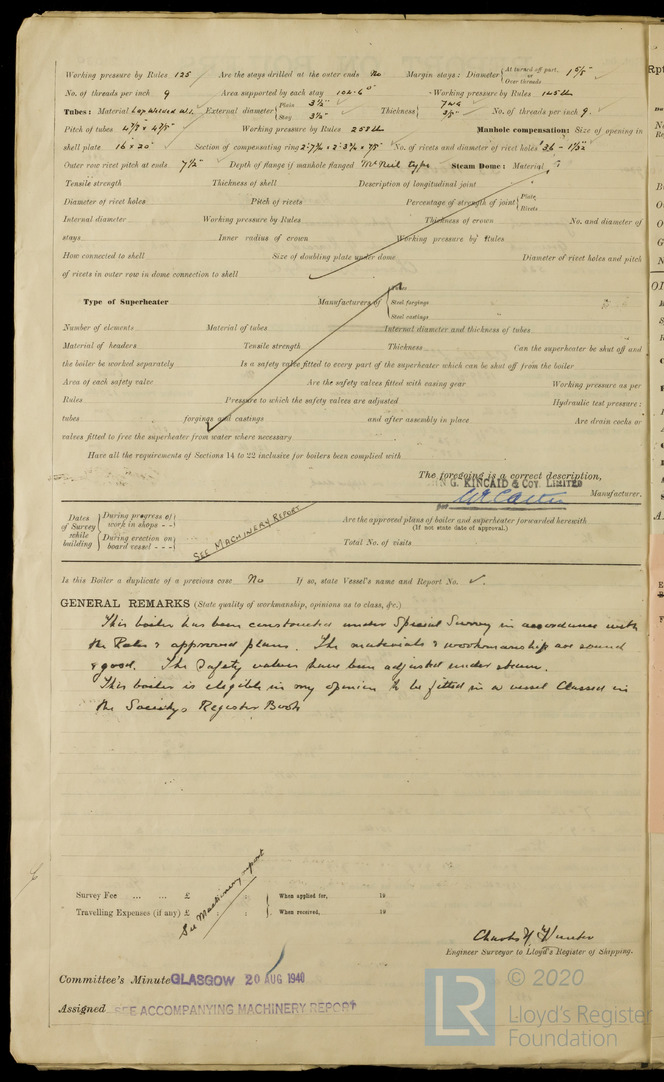 Working pressure by Rules 125 Are the stays drilled at the outer ends No Margin stays: Diameter { At turned off part, or Over threads 1 5/8"
No. of threads per inch 9 Area supported by each stay Working pressure by Rules
Tubes: Material Lap Welded W.I. External diameter { Plain 3½" Stay 3½" Thickness { 7 WG No. of threads per inch 9.
Pitch of tubes Working pressure by Rules Manhole compensation: Size of opening in
shell plate 16 x 20" Section of compensating ring No. of rivets and diameter of rivet holes 36 - 1 1/32"
Outer row rivet pitch at ends 7½" Depth of flange if manhole flanged McNeil type Steam Dome: Material
Tensile strength Thickness of shell Description of longitudinal joint
Diameter of rivet holes Pitch of rivets Percentage of strength of joint { Plate Rivets
Internal diameter Working pressure by Rules Thickness of crown No. and diameter of
stays Inner radius of crown Working pressure by Rules
How connected to shell Size of doubling plate under dome Diameter of rivet holes and pitch
of rivets in outer row in dome connection to shell
Type of Superheater Manufacturers of { Tubes Steel forgings Steel castings
Number of elements Material of tubes Internal diameter and thickness of tubes
Material of headers Tensile strength Thickness Can the superheater be shut off and
the boiler be worked separately Is a safety valve fitted to every part of the superheater which can be shut off from the boiler
Area of each safety valve Are the safety valves fitted with easing gear Working pressure as per
Rules Pressure to which the safety valves are adjusted Hydraulic test pressure:
tubes forgings and castings and after assembly in place Are drain cocks or
valves fitted to free the superheater from water where necessary
Have all the requirements of Sections 14 to 22 inclusive for boilers been complied with
The foregoing is a correct description,
G. KINCAID & COY. LIMITED
Manufacturer.
Dates of Survey while building { During progress of work in shops - - } { During erection on board vessel - - - }
SEE MACHINERY REPORT
Are the approved plans of boiler and superheater forwarded herewith
(If not state date of approval.)
Total No. of visits
Is this Boiler a duplicate of a previous case No If so, state Vessel's name and Report No.
GENERAL REMARKS (State quality of workmanship, opinions as to class, &c.)
This boiler has been constructed under Special Survey in accordance with
the Rules & approved plans. The materials & workmanship are sound
& good. The Safety valves have been adjusted under steam.
This boiler is eligible in my opinion to be fitted in a vessel Classed in
the Society's Register Book
See Machinery report
Survey Fee ... ... £ : : When applied for, 19
Travelling Expenses (if any) £ : : When received, 19
Charles H. Hunter
Engineer Surveyor to Lloyd's Register of Shipping.
Committee's Minute GLASGOW 20 AUG 1940
Assigned SEE ACCOMPANYING MACHINERY REPORT
LR
© 2020
Lloyd's Register
Foundation